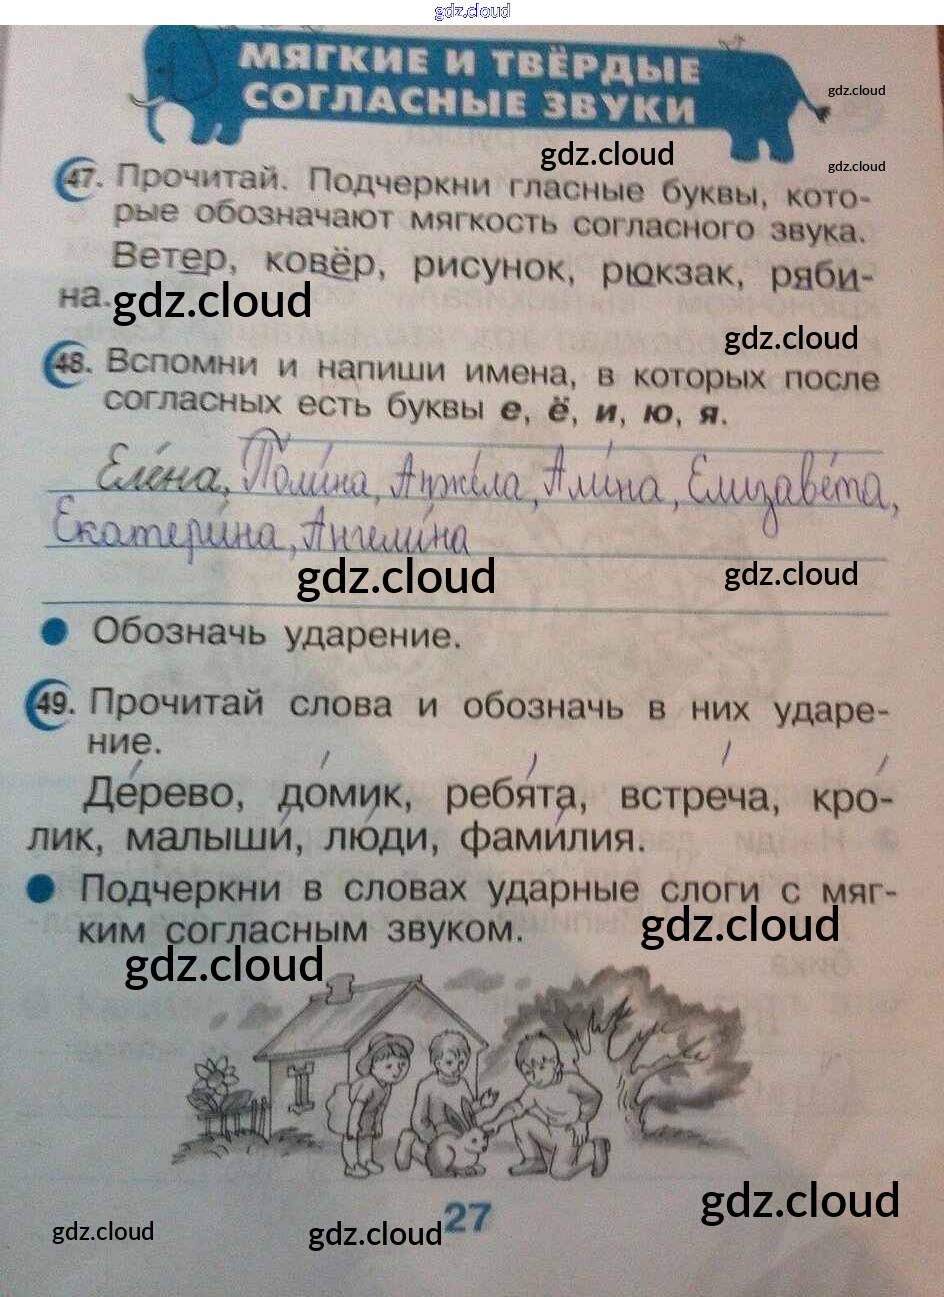 gdz.cloud
МЯГКИЕ И ТВЁРДЫЕ
СОГЛАСНЫЕ ЗВУКИ
gdz.cloud
gdz.cloud
gdz.cloud
47. Прочитай. Подчеркни гласные буквы, кото-
рые обозначают мягкость согласного звука.
Ветер, ковёр, рисунок, рюкзак, ряби-
на.
gdz.cloud
gdz.cloud
48. Вспомни и напиши имена, в которых после
согласных есть буквы е, ё, и, ю, я.
Еле́на, Поли́на, Анже́ла, Али́на, Елизаве́та,
Екатери́на, Ангели́на
gdz.cloud
gdz.cloud
Обозначь ударение.
49. Прочитай слова и обозначь в них ударе-
ние.
Де́рево, до́мик, ребя́та, встре́ча, кро́-
лик, малыши́, лю́ди, фами́лия.
Подчеркни в словах ударные слоги с мяг-
ким согласным звуком.
gdz.cloud
gdz.cloud
gdz.cloud
27
gdz.cloud
gdz.cloud